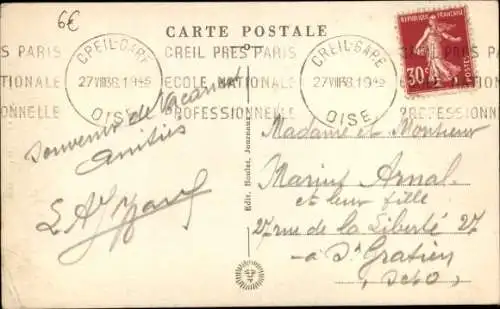 6€
CARTE POSTALE
CREIL-GARE
27 VII 38. 19
OISE
CREIL PRES PARIS
ECOLE NATIONALE
PROFESSIONNELLE
CREIL-GARE
27 VII 38. 19
OISE
PRES PARIS
NATIONALE
PROFESSIONNELLE
REPUBLIQUE FRANÇAISE
30c
Souvenir de Vacances
Amitiés
Edit. Houlet, Journaux
Madame et Monsieur
Marius Arnal
et leur fille
27 rue de la Liberté 27
à St Gratien